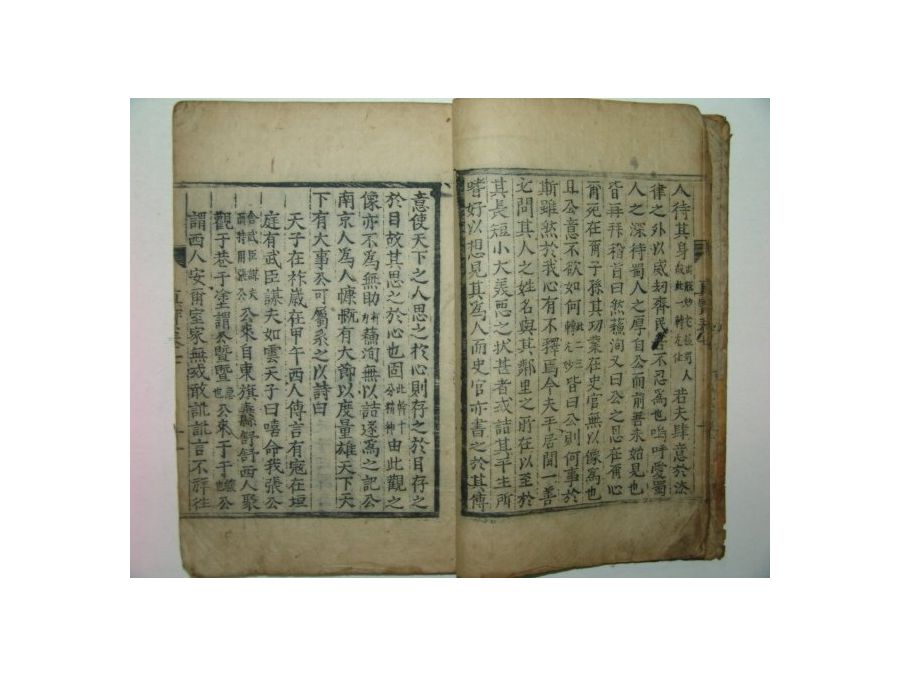 人待其身 故此一轉尤佳 若夫肆意於法
律之外以威劫齊民吾不忍為也嗚呼愛蜀
人之深待蜀人之厚自公而前吾未始見也
皆再拜稽首曰然蘇洵又曰公之恩在爾心
爾死在爾子孫其功業在史官無以像為也
且公意不欲如何此二三轉尤妙皆曰公則何事於
斯雖然於我心有不釋焉今夫平居聞一善
必問其人之姓名與其鄰里之所在以至於
其長短小大美惡之狀甚者或詰其平生所
嗜好以想見其為人而史官亦書之於其傳
意使天下之人思之於心則存之於目存之
於目故其思之於心也固此幹十分精神由此觀之
像亦不為無助蘇洵無以詰遂為之記公
南京人為人慷慨有大節以度量雄天下天
下有大事公可屬系之以詩曰
天子在祚歲在甲午西人傳言有寇在垣
庭有武臣謀夫如雲天子曰嘻命我張公
公來自東旗纛舒舒西人聚
觀于巷于塗謂公暨暨公來于于公
謂西人安爾室家無或敢訛訛言不祥往